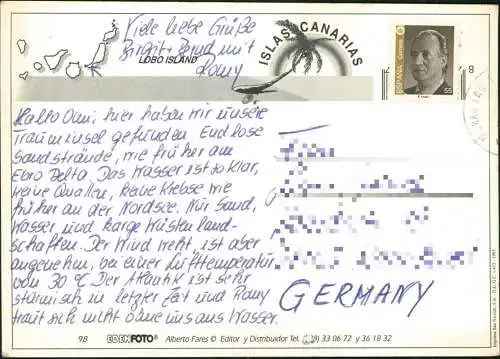 Viele liebe Grüße
Birgit + Bernd mit
Romy
LOBO ISLAND
ISLAS CANARIAS
ESPAÑA
Correos
55
8
Hallo Omi, hier haben wir unsere
Trauminsel gefunden. Endlose
Sandstrände, wie früher am
Ebro Delta. Das Wasser ist so klar,
keine Quallen, keine Krebse wie
früher an der Nordsee. Nur Sand,
Wasser und karge Wüstenland-
schaften. Der Wind weht, ist aber
angenehm, bei einer Lufttemperatur
von 30 °C. Der Atlantik ist sehr
stürmisch in letzter Zeit und Romy
traut sich nicht ohne uns ans Wasser.
GERMANY
98 EDENFOTO® Alberto Fares © Editor y Distribuidor Tel. 33 06 72 y 36 18 32